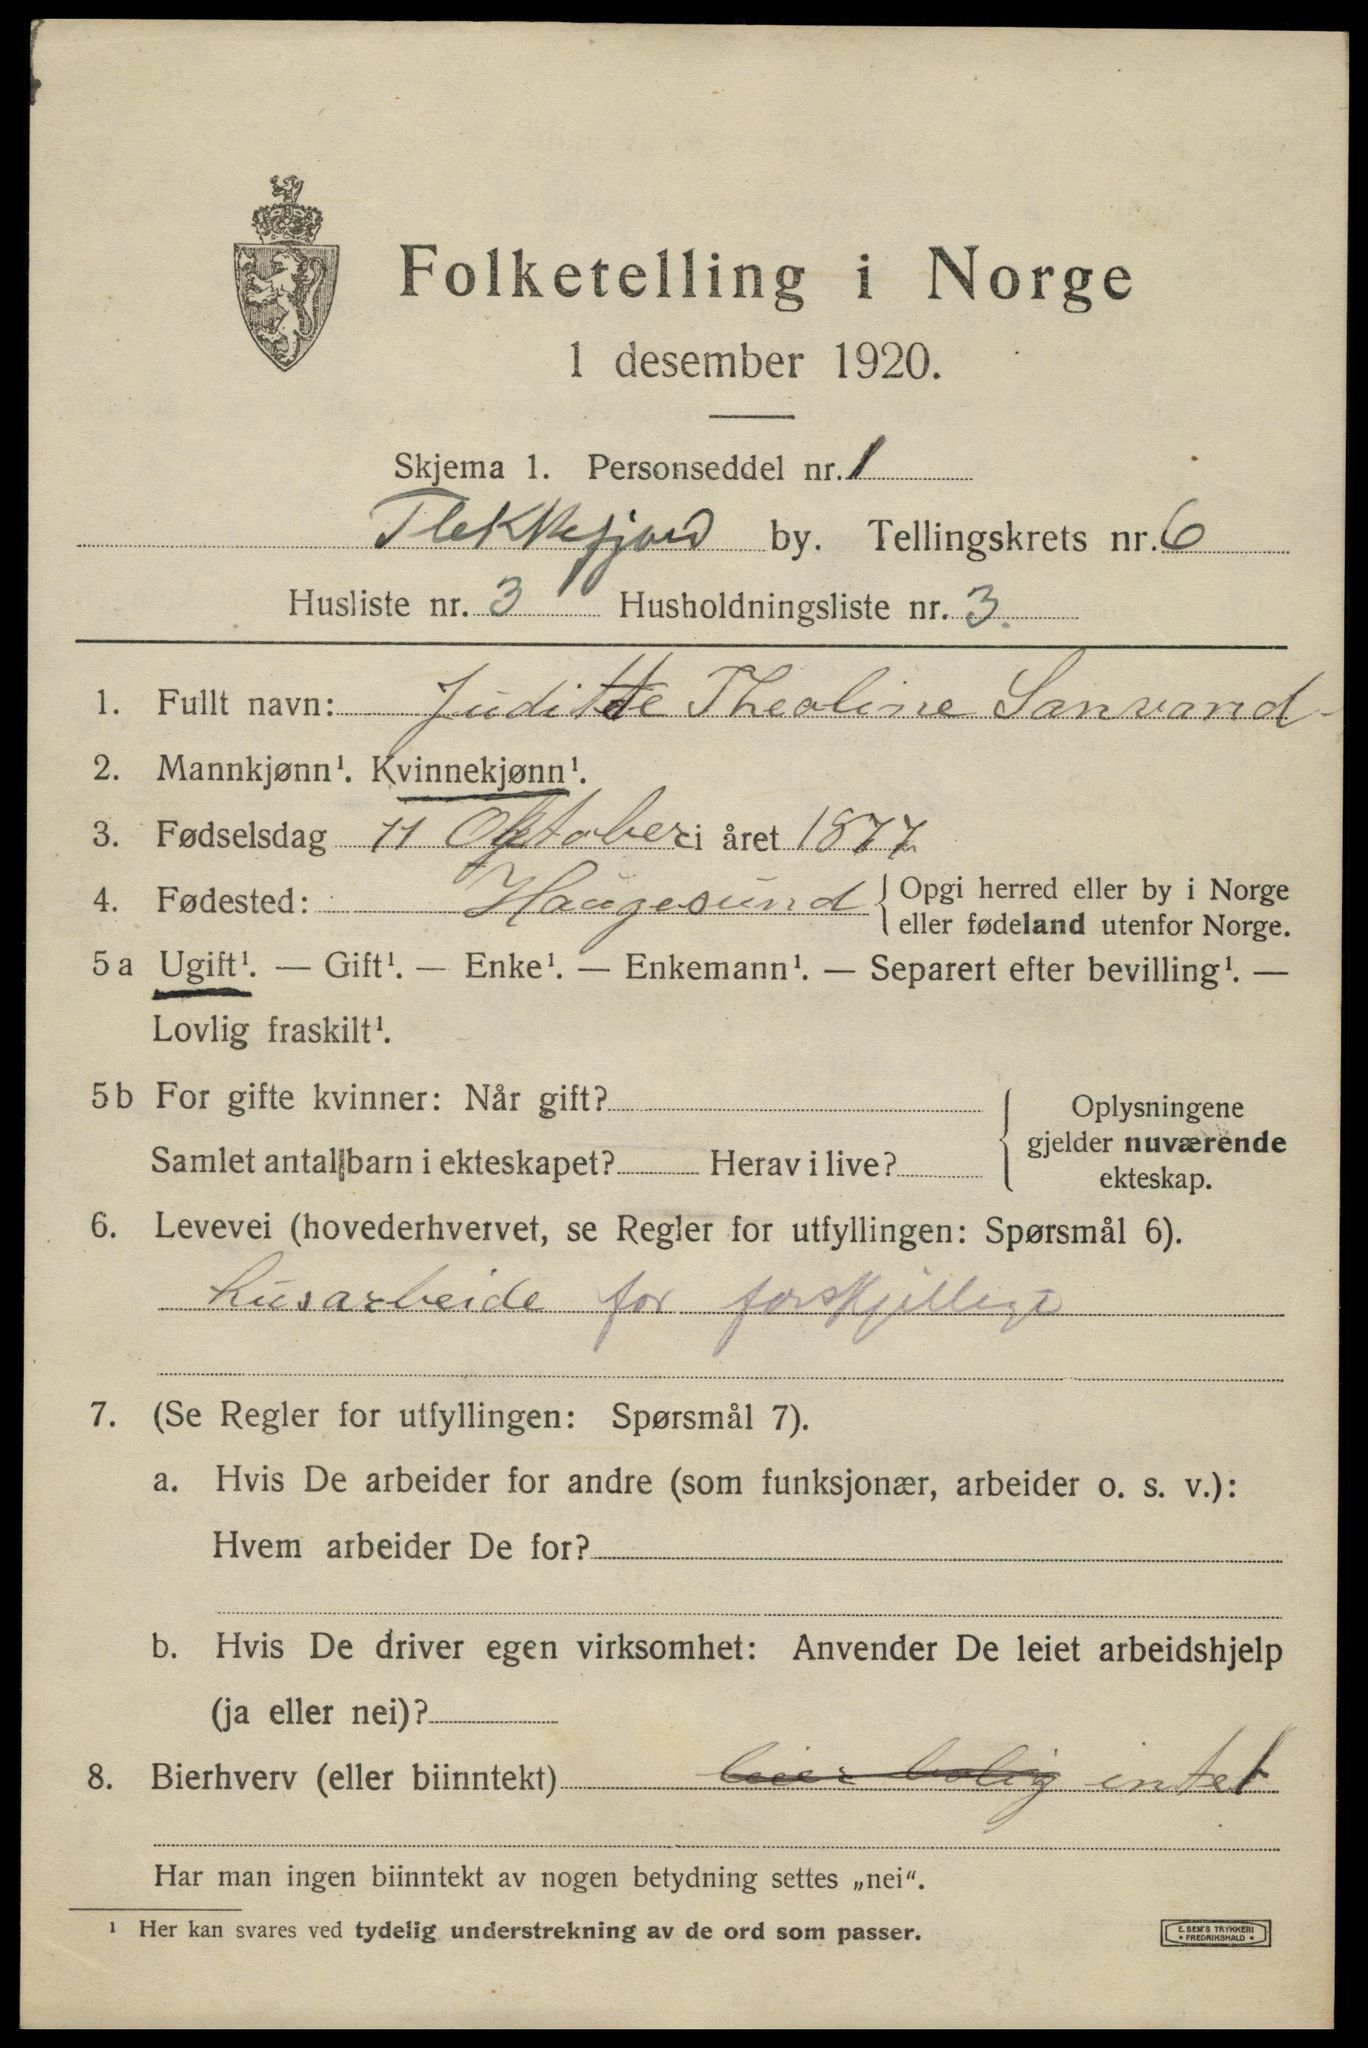 Folketelling i Norge
1 desember 1920.
Skjema 1. Personseddel nr. 1
Flekkefjord by. Tellingskrets nr. 6
Husliste nr. 3 Husholdningsliste nr. 3.
1. Fullt navn: Juditte Theoline Sanvand
2. Mannkjønn¹. Kvinnekjønn¹.
3. Fødselsdag 11 Oktober i året 1877
4. Fødested: Haugesund { Opgi herred eller by i Norge
eller fødeland utenfor Norge.
5 a Ugift¹. — Gift¹. — Enke¹. — Enkemann¹. — Separert efter bevilling¹. —
Lovlig fraskilt¹.
5 b For gifte kvinner: Når gift?
Samlet antal barn i ekteskapet? Herav i live?
Oplysningene
gjelder nuværende
ekteskap.
6. Levevei (hovederhvervet, se Regler for utfyllingen: Spørsmål 6).
husarbeide for forskjellige
7. (Se Regler for utfyllingen: Spørsmål 7).
a. Hvis De arbeider for andre (som funksjonær, arbeider o. s. v.):
Hvem arbeider De for?
b. Hvis De driver egen virksomhet: Anvender De leiet arbeidshjelp
(ja eller nei)?
8. Bierhverv (eller biinntekt) leier bolig intet
Har man ingen biinntekt av nogen betydning settes „nei“.
¹ Her kan svares ved tydelig understrekning av de ord som passer.
E. SEM'S TRYKKERI
* FREDRIKSHALD *